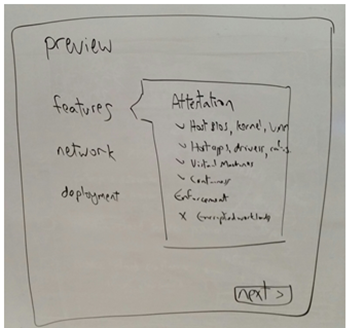 preview
features
network
deployment
Attestation
Host Bios, kernel, vmm
Host apps, drivers,
Virtual Machines
Containers
Enforcement
x Encrypted workloads
next >